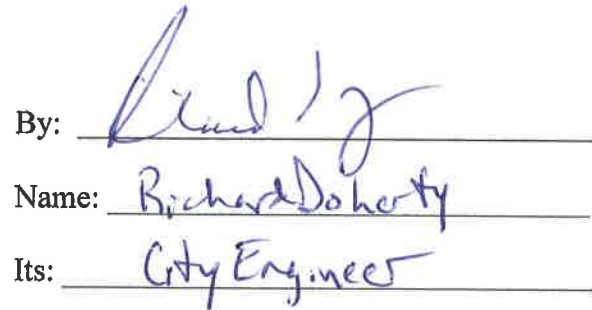 By:
Name: Richard Doherty
Its: City Engineer